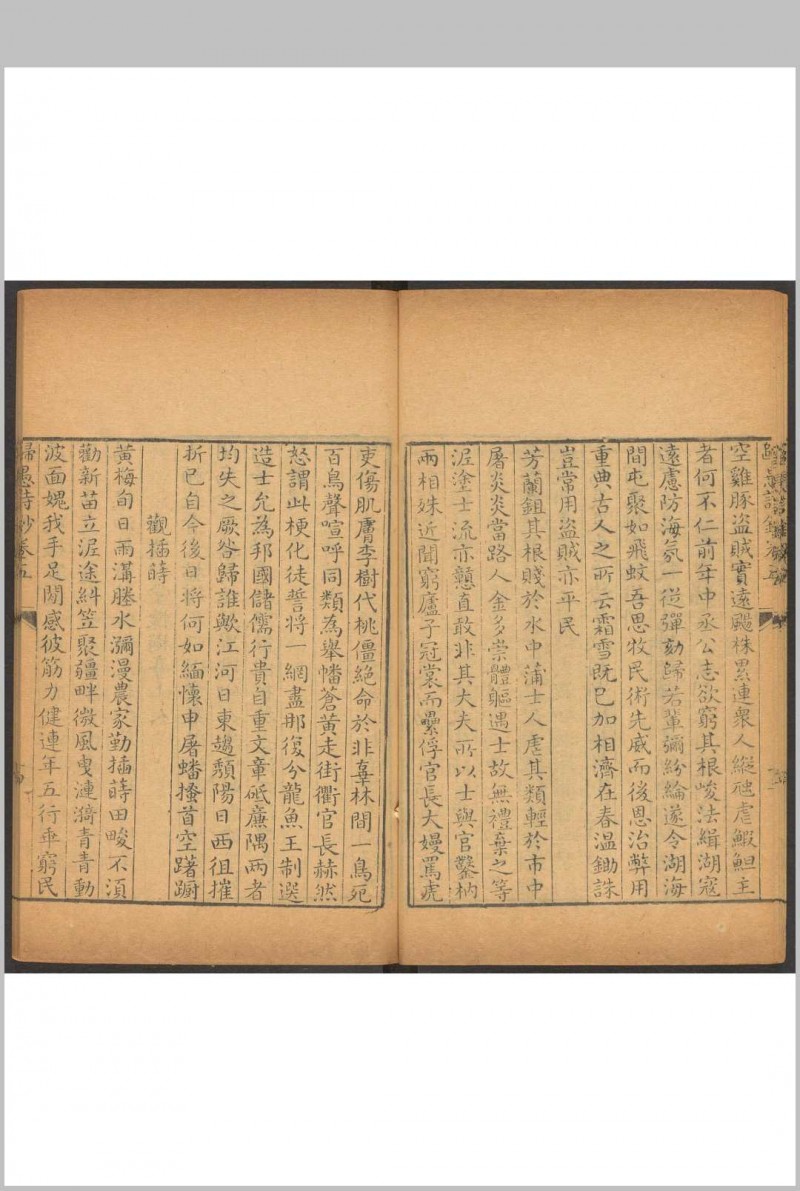 空雞豚盜賊實遠颺株累連衆人縱虺虐鰕䱇主
者何不仁前年中丞公志欲窮其根峻法緝湖寇
遠慮防海氛一從彈劾歸若輩彌紛綸遂令湖海
間屯聚如飛蚊吾思牧民術先威而後恩治弊用
重典古人之所云霜雪既已加相濟在春温鋤誅
豈常用盜賊亦平民
芳蘭鉏其根賤於水中蒲士人虐其類輕於市中
屠炎炎當路人金多崇體軀遇士故無禮棄之等
泥塗士流亦戇直敢非其大夫所以士與官鑿枘
兩相殊近聞窮廬子冠裳而纍俘官長大嫚罵虎
吏傷肌膚李樹代桃僵絕命於非辜林間一鳥死
百鳥聲喧呼同類為舉幡蒼黃走街衢官長赫然
怒謂此梗化徒誓將一網盡那復分龍魚王制選
造士允為邦國儲儒行貴自重文章砥廉隅兩者
均失之厥咎歸誰歟江河日東趨頹陽日西徂摧
折已自今後日將何如緬懷申屠蟠搔首空躇躕
觀插蒔
黃梅旬日雨溝塍水瀰漫農家勤插蒔田畯不須
勸新苗立泥途糾笠聚疆畔微風曳漣漪青青動
波面媿我手足閒感彼筋力健連年五行乖窮民
歸愚詩鈔卷五